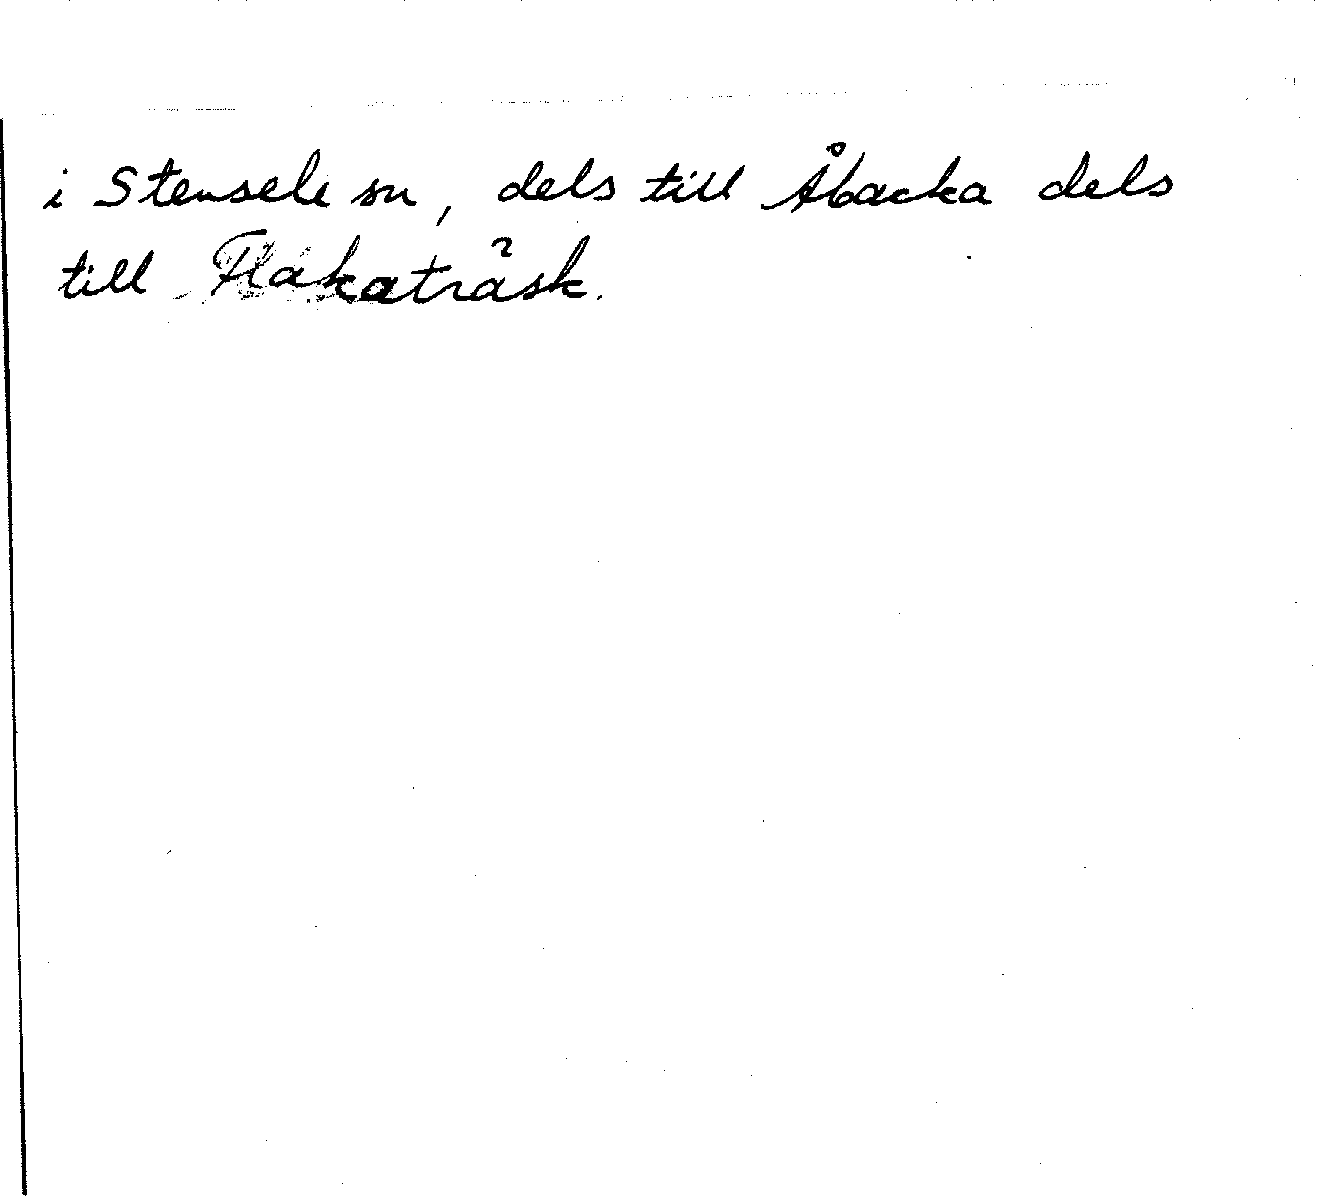 i Stensele sn, dels till Åbacka dels
till Flakaträsk.